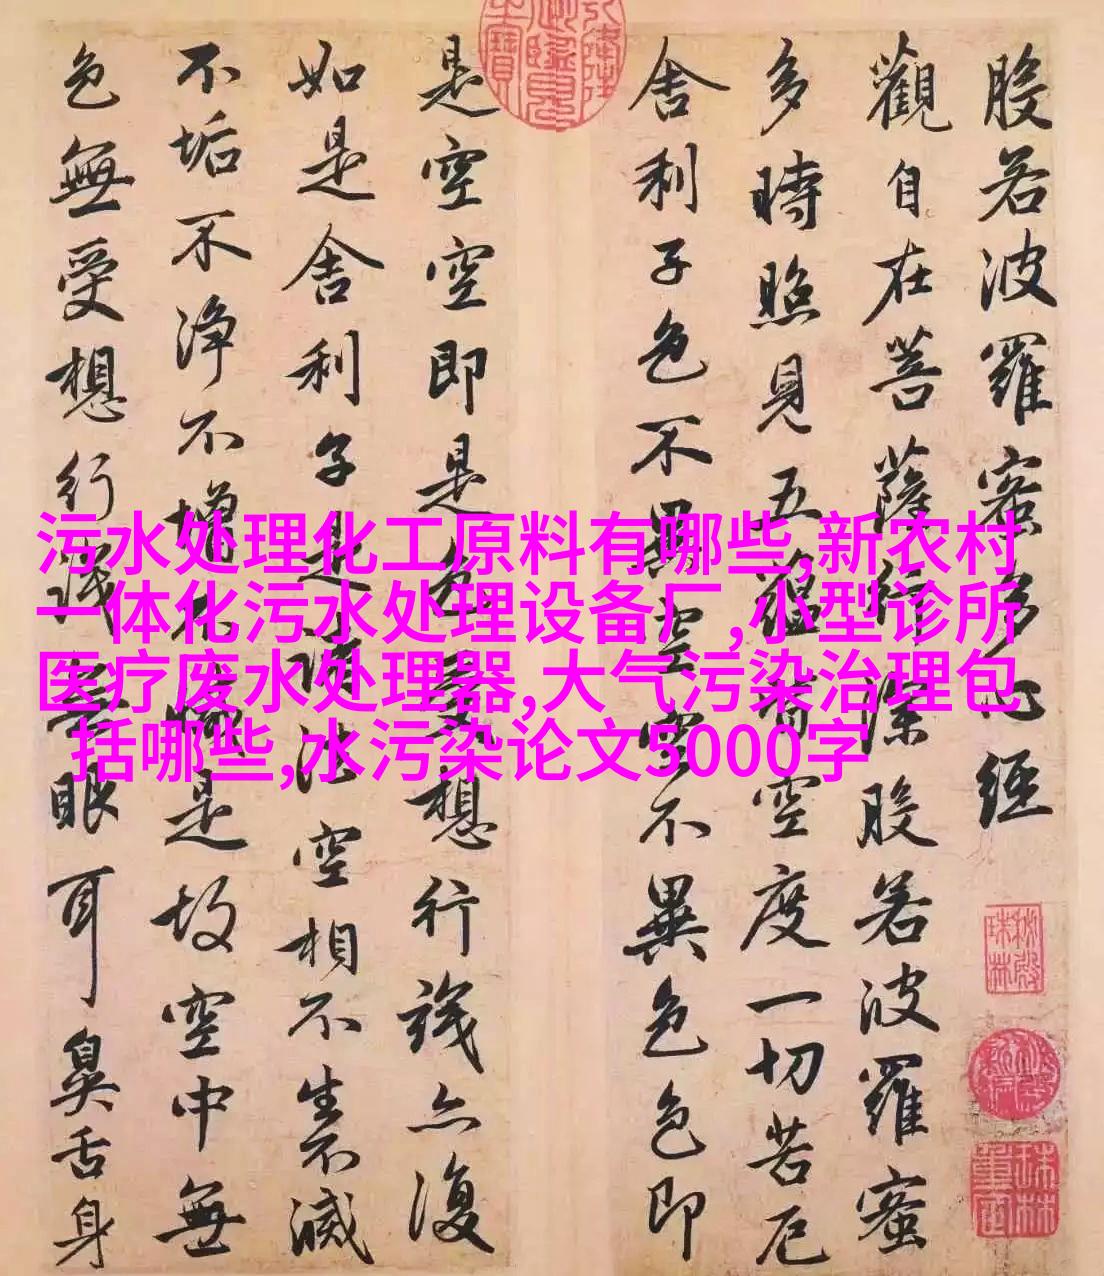 般若波羅蜜多心經
觀自在菩薩行深般若波羅蜜
多時照見五蘊皆空度一切苦厄
舍利子色不異空空不異色色即
是空空即是色受想行識亦復
如是舍利子是諸法空相不生不滅
不垢不净不增不減是故空中無
色無受想行識無眼耳鼻舌身
污水处理化工原料有哪些,新农村
一体化污水处理设备厂,小型诊所
医疗废水处理器,大气污染治理包
括哪些,水污染论文5000字